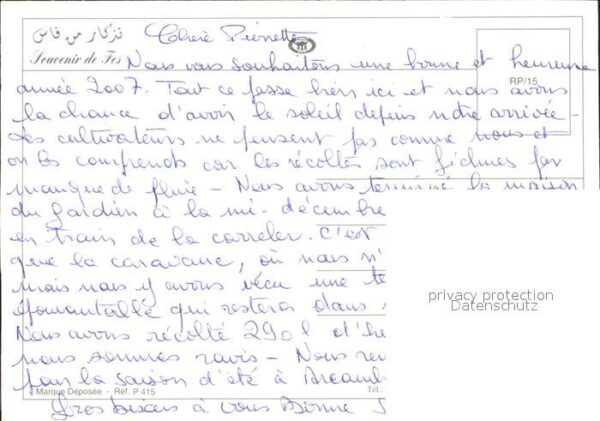 تذكار من فاس
Souvenir de Fes
Chère Pierrette
Nous vous souhaitons une bonne et heureuse
année 2007. Tout ce passe bien ici et nous avons
RP/15
la chance d'avoir le soleil depuis notre arrivée -
Les cultivateurs ne pensent pas comme nous et
on les comprends car les récoltes sont fichues par
manque de pluie - Nous avons terminé la maison
du gardien à la mi-décembre
en train de la carreler. C'est
que la caravane, où nous n'
mais nous y avons vécu une te
épouvantable qui restera dans
privacy protection
Datenschutz
Nous avons récolté 290 l d'hu
nous sommes ravis - Nous rev
pour la saison d'été à Arcamb
Marque Déposée - Réf. P 415
Tél.
Gros bisous à vous Bonne S